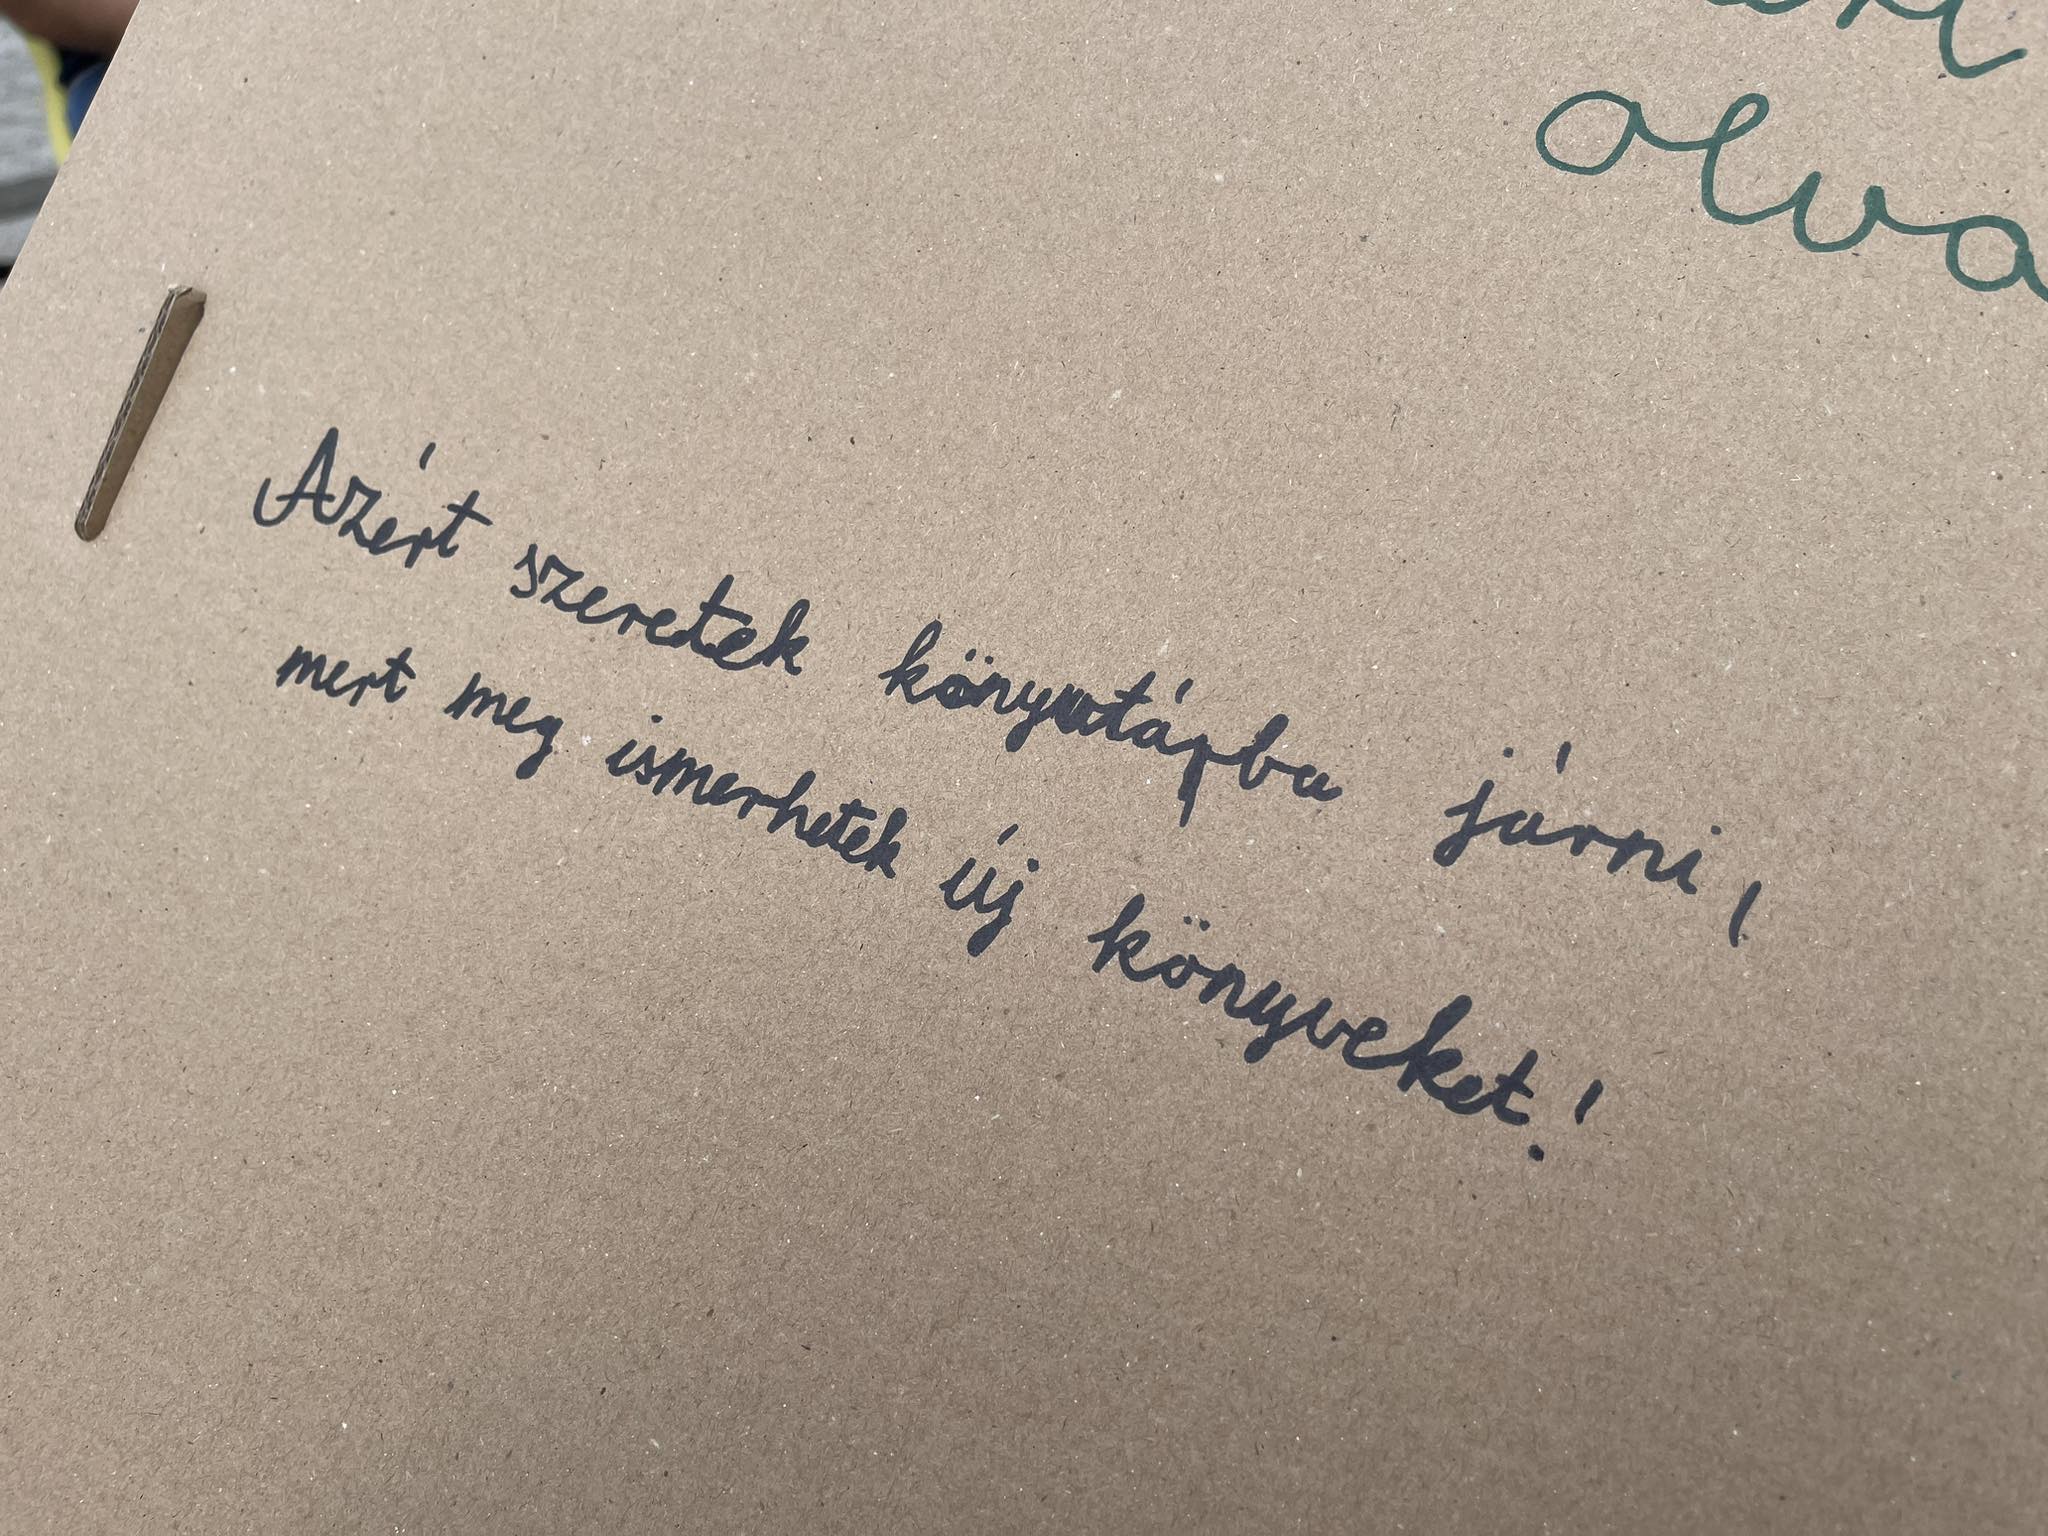 olva
Azért szeretek könyvtárba járni,
mert meg ismerhetek új könyveket!